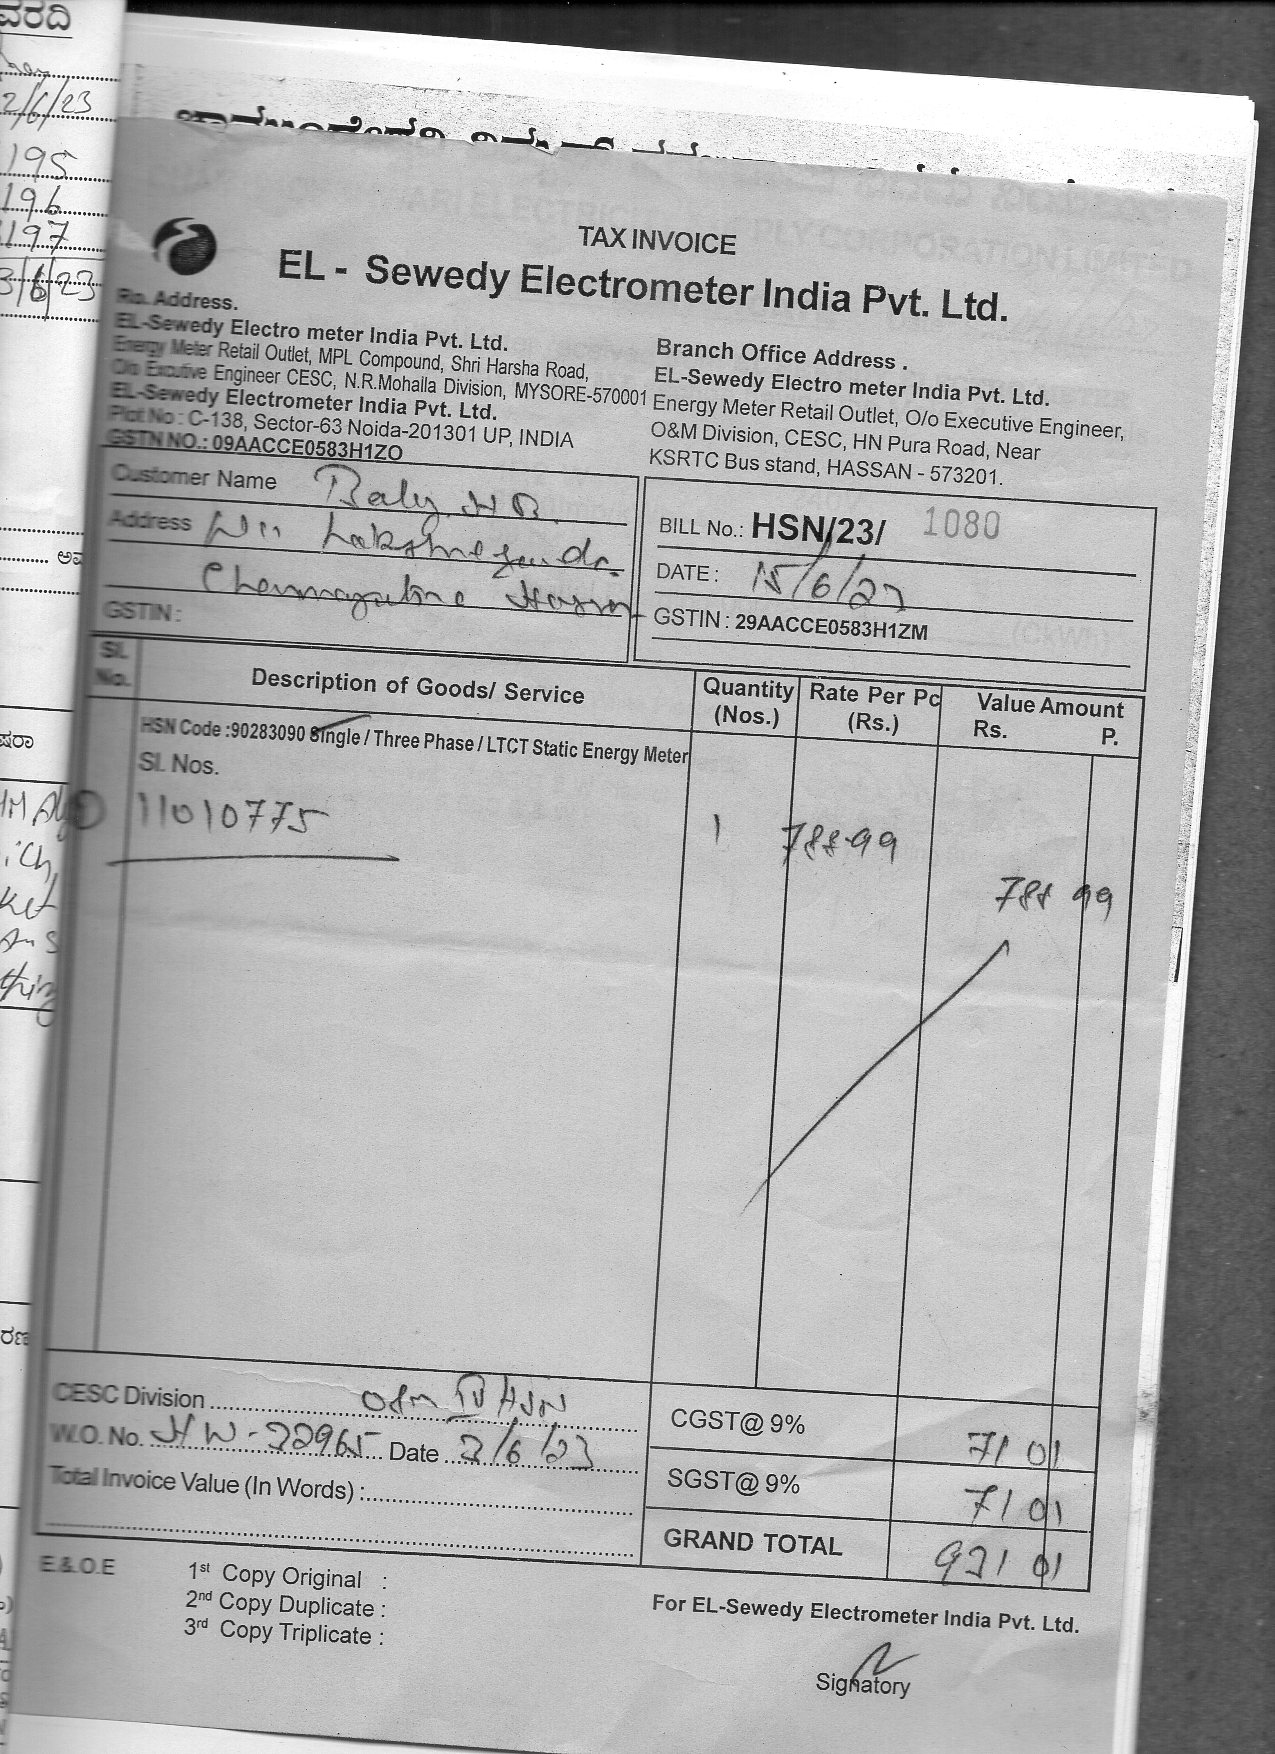 ವರದಿ
2/6/23
195
196
197
3/6/23
TAX INVOICE
EL - Sewedy Electrometer India Pvt. Ltd.
Ro. Address.
EL-Sewedy Electro meter India Pvt. Ltd.
Energy Meter Retail Outlet, MPL Compound, Shri Harsha Road,
O/o Excutive Engineer CESC, N.R.Mohalla Division, MYSORE-570001
EL-Sewedy Electrometer India Pvt. Ltd.
Plot No : C-138, Sector-63 Noida-201301 UP, INDIA
GSTN NO.: 09AACCE0583H1ZO
Branch Office Address .
EL-Sewedy Electro meter India Pvt. Ltd.
Energy Meter Retail Outlet, O/o Executive Engineer,
O&M Division, CESC, HN Pura Road, Near
KSRTC Bus stand, HASSAN - 573201.
Customer Name
Address
GSTIN :
BILL No.: HSN/23/ 1080
DATE : 15/6/23
GSTIN : 29AACCE0583H1ZM
Sl. No. Description of Goods/ Service Quantity (Nos.) Rate Per Pc (Rs.) Value Amount Rs. P.
HSN Code :90283090 Single / Three Phase / LTCT Static Energy Meter
Sl. Nos.
11010775 1 788.99
788 99
CESC Division O&M HSN
W.O. No. HW-22965 Date 2/6/23
Total Invoice Value (In Words) :
CGST@ 9% 71 01
SGST@ 9% 71 01
GRAND TOTAL 931 01
E.&.O.E
1st Copy Original :
2nd Copy Duplicate :
3rd Copy Triplicate :
For EL-Sewedy Electrometer India Pvt. Ltd.
Signatory